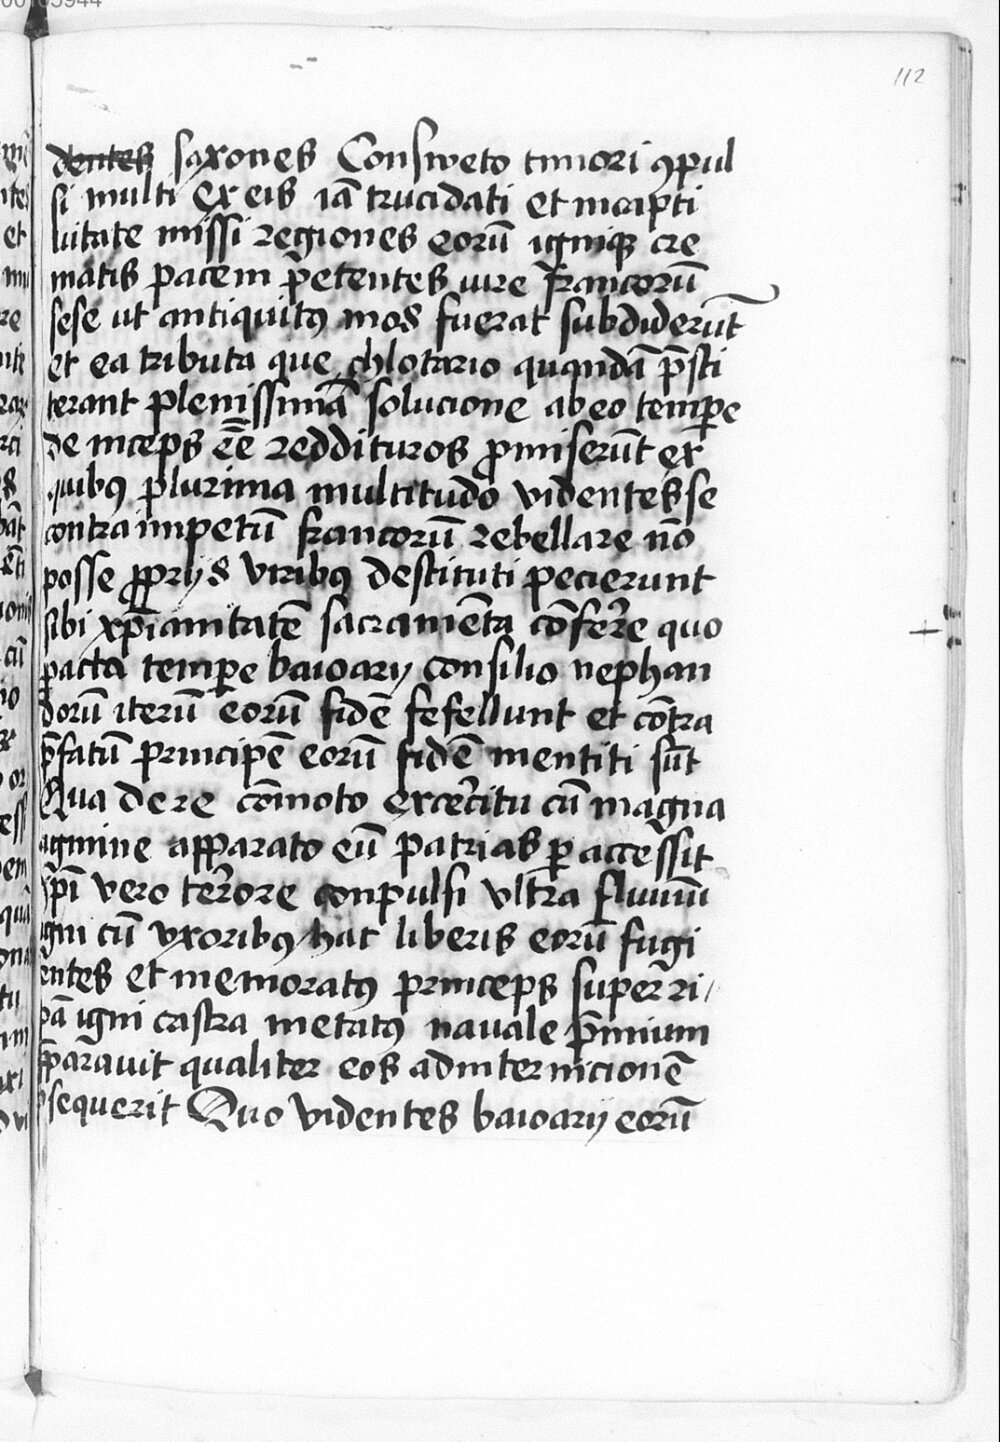 112
dentes saxones Consweto timori ꝯpul
si multi ex eis iā trucidati et incapti
uitate missi regiones eorū igniqꝫ cre
matis pacem p̄etentes iure francorū
sese ut antiquitꝰ mos fuerat subdiderūt
et ea tributa que chlotario quōndā p̄sti
terant plenissimā solucione ab eo temp̲e
de inceps eēe reddituros ꝓmiserūt ex
quibꝰ plurima multitudo videntes se
contra impetū francorū rebellare nō
posse ꝓprijs viribꝰ destituti pecierunt
sibi xp̄ianitatē sacramēta cōferre quo
pacta temp̲e baioarij consilio nephan
dorū iterū eorū fidē fefellunt et cōtra
p̄fatū principē eorū fidē mentiti sūt
Qua de re cōmoto exc̄ercitu cū magna
agmine apparato eū patrias ꝑaccessit
ip̄i vero terrore conpulsi vltra fluuiū
igni cū vxoribꝰ hac liberis eorū fugi
entes et memoratꝰ princeps super ri
pā igni castra metatꝰ nauale p̄mium
p̄parauit qualiter eos adinternicionē
ꝑsequerit Quo videntes baioarij eorū